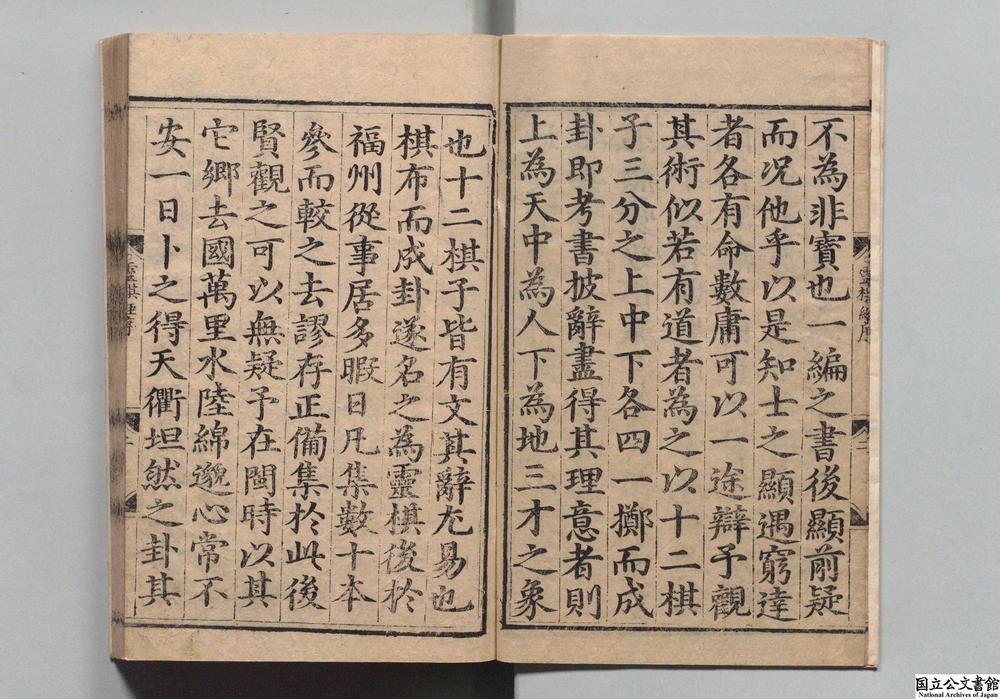 不為非寶也一編之書後顯前疑
而况他乎以是知士之顯遇窮達
者各有命數庸可以一途辯予觀
其術似若有道者為之以十二棋
子三分之上中下各四一擲而成
卦即考書披辭盡得其理意者則
上為天中為人下為地三才之象
也十二棋子皆有文其辭尤易也
棋布而成卦遂名之為靈棋後於
福州從事居多暇日凡集數十本
參而較之去謬存正備集於此後
賢觀之可以無疑予在閩時以其
它鄉去國萬里水陸綿邈心常不
安一日卜之得天衢坦然之卦其
国立公文書館
National Archives of Japan